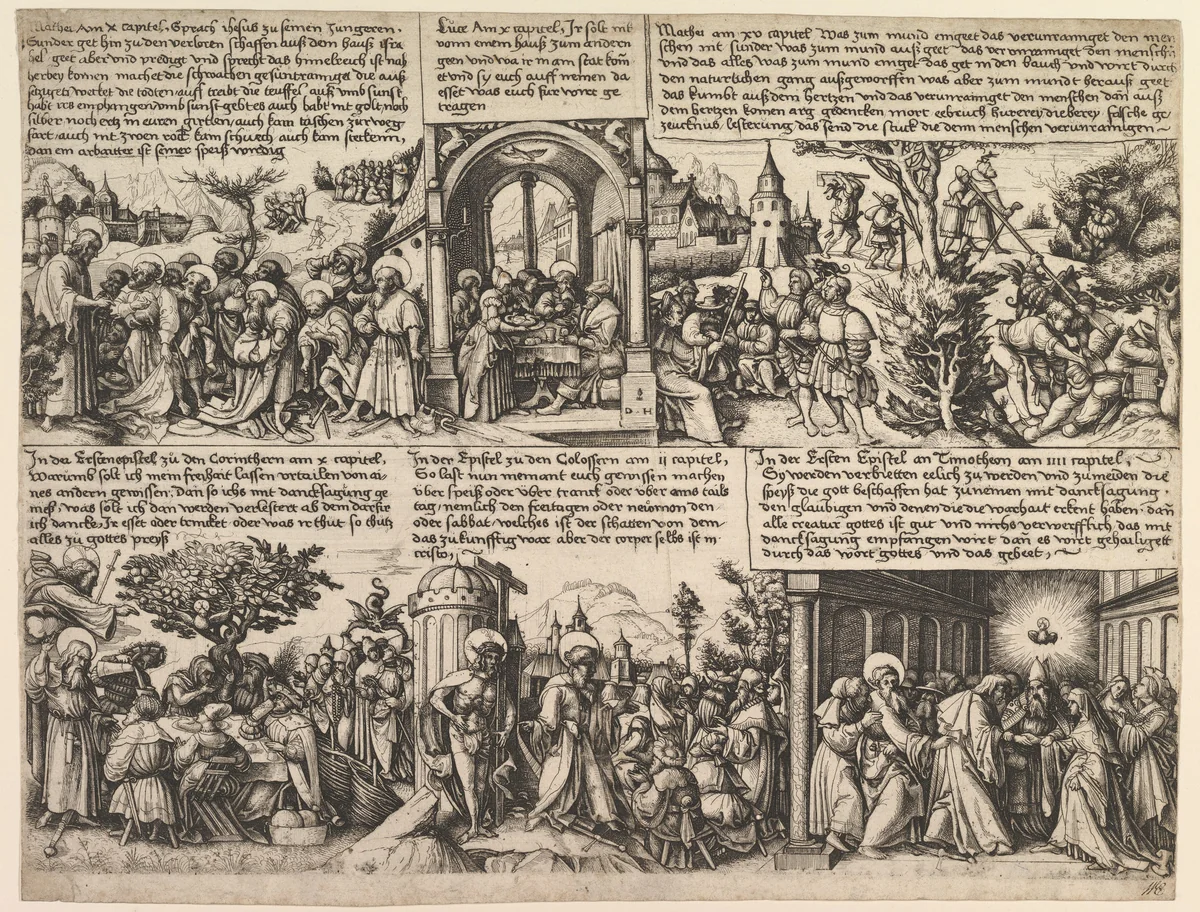 Mathei Am x capitel, Sprach ihesus zu seinen Jungeren,
Sunder get hin zu den verloren schaffen auß dem hauß isra
hel geet aber und predigt und sprecht das himelreich ist nah
herbey komen machet die schwachen gesunt rainiget die auß
setzigen wecket die todten auff treibt die teuffel auß umb sunst
habt irs emphangen umb sunst gebt es auch habt nit golt noch
silber noch ertz in euren girtlen auch kain taschen zur weg
fart auch nit zwen rock kain schuech auch kain stecken,
dan ein arbaiter ist seiner speiß wirdig
Luce Am x capitel, Ir solt nit
vonn einem hauß zum andern
geen und wa ir in ain stat komt
et und sy euch auff nemen da
esset was euch fur wirt ge
tragen
Mathei am xv capitel Was zum mund eingeet das verunrainiget den men
schen nit sunder was zum mund auß geet das verunrainiget den menschn
und das alles was zum mund einget das get in den bauch und wirt durch
den naturlichen gang außgeworffen was aber zum mundt herauß geet
das kumbt auß dem hertzen und das verunrainiget den menschen dan auß
dem hertzen komen arg gedencken mort eebruch hurerey dieberey falsche ge
zeucknus, lesterung das send die stuck die denn menschen verunrainigen
D H
In der Ersten epistel zu den Corinthern am x capitel,
Warumb solt ich mein freihait lassen urtailen von ai-
nes andern gewissen, Dan so ichs mit dancksagung ge
nieß, was solt ich dan werden verlestert ab dem darfir
ich dancke, Ir esset oder trincket oder was ir thut so thutz
alles zu gottes preyß
In der Epistel zu den Colossern am II capitel,
So last nun niemant euch gewissen machen
uber speiß oder uber tranck oder uber ains tails
tag, nemlich den feitagen oder neuwmon den-
oder sabbat, welches ist der schatten von dem-
das zukunfftig war aber der corper selbs ist in-
cristo,
In der Ersten Epistel an Timotheon am IIII capitel,
Sy werden verbietten eelich zu werden und zu meiden die
speyß die gott beschaffen hat zu nemen mit dancksagung,
den glaubigen und denen die die warhait erkent haben, dan
alle creatur gottes ist gut und nichs verwerfflich, das mit
dancksagung empfangen wirt dan es wirt gehailiget
durch das wort gottes und das gebeet,